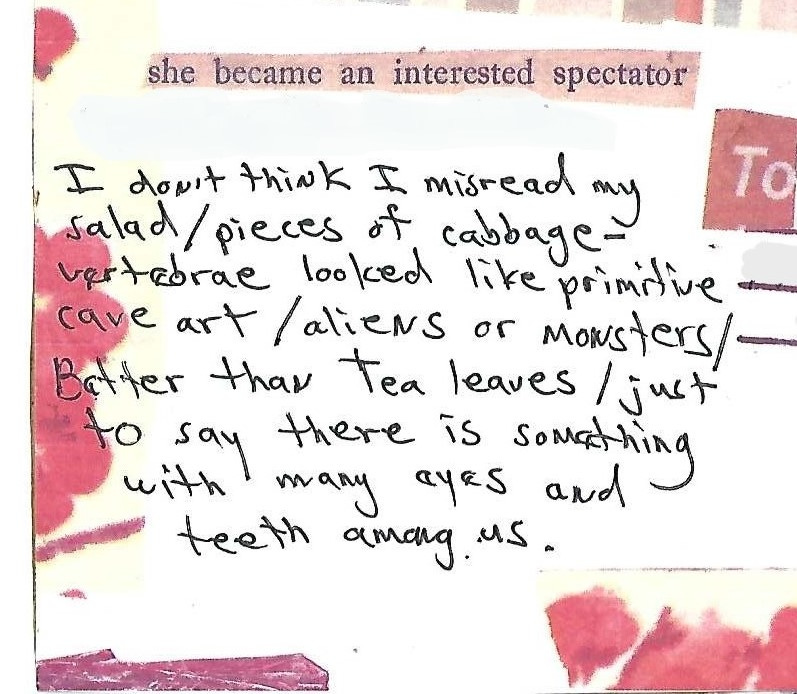 she became an interested spectator
To
I don't think I misread my
salad/pieces of cabbage-
vertebrae looked like primitive
cave art/aliens or monsters/
Better than tea leaves/just
to say there is something
with many eyes and
teeth among us.